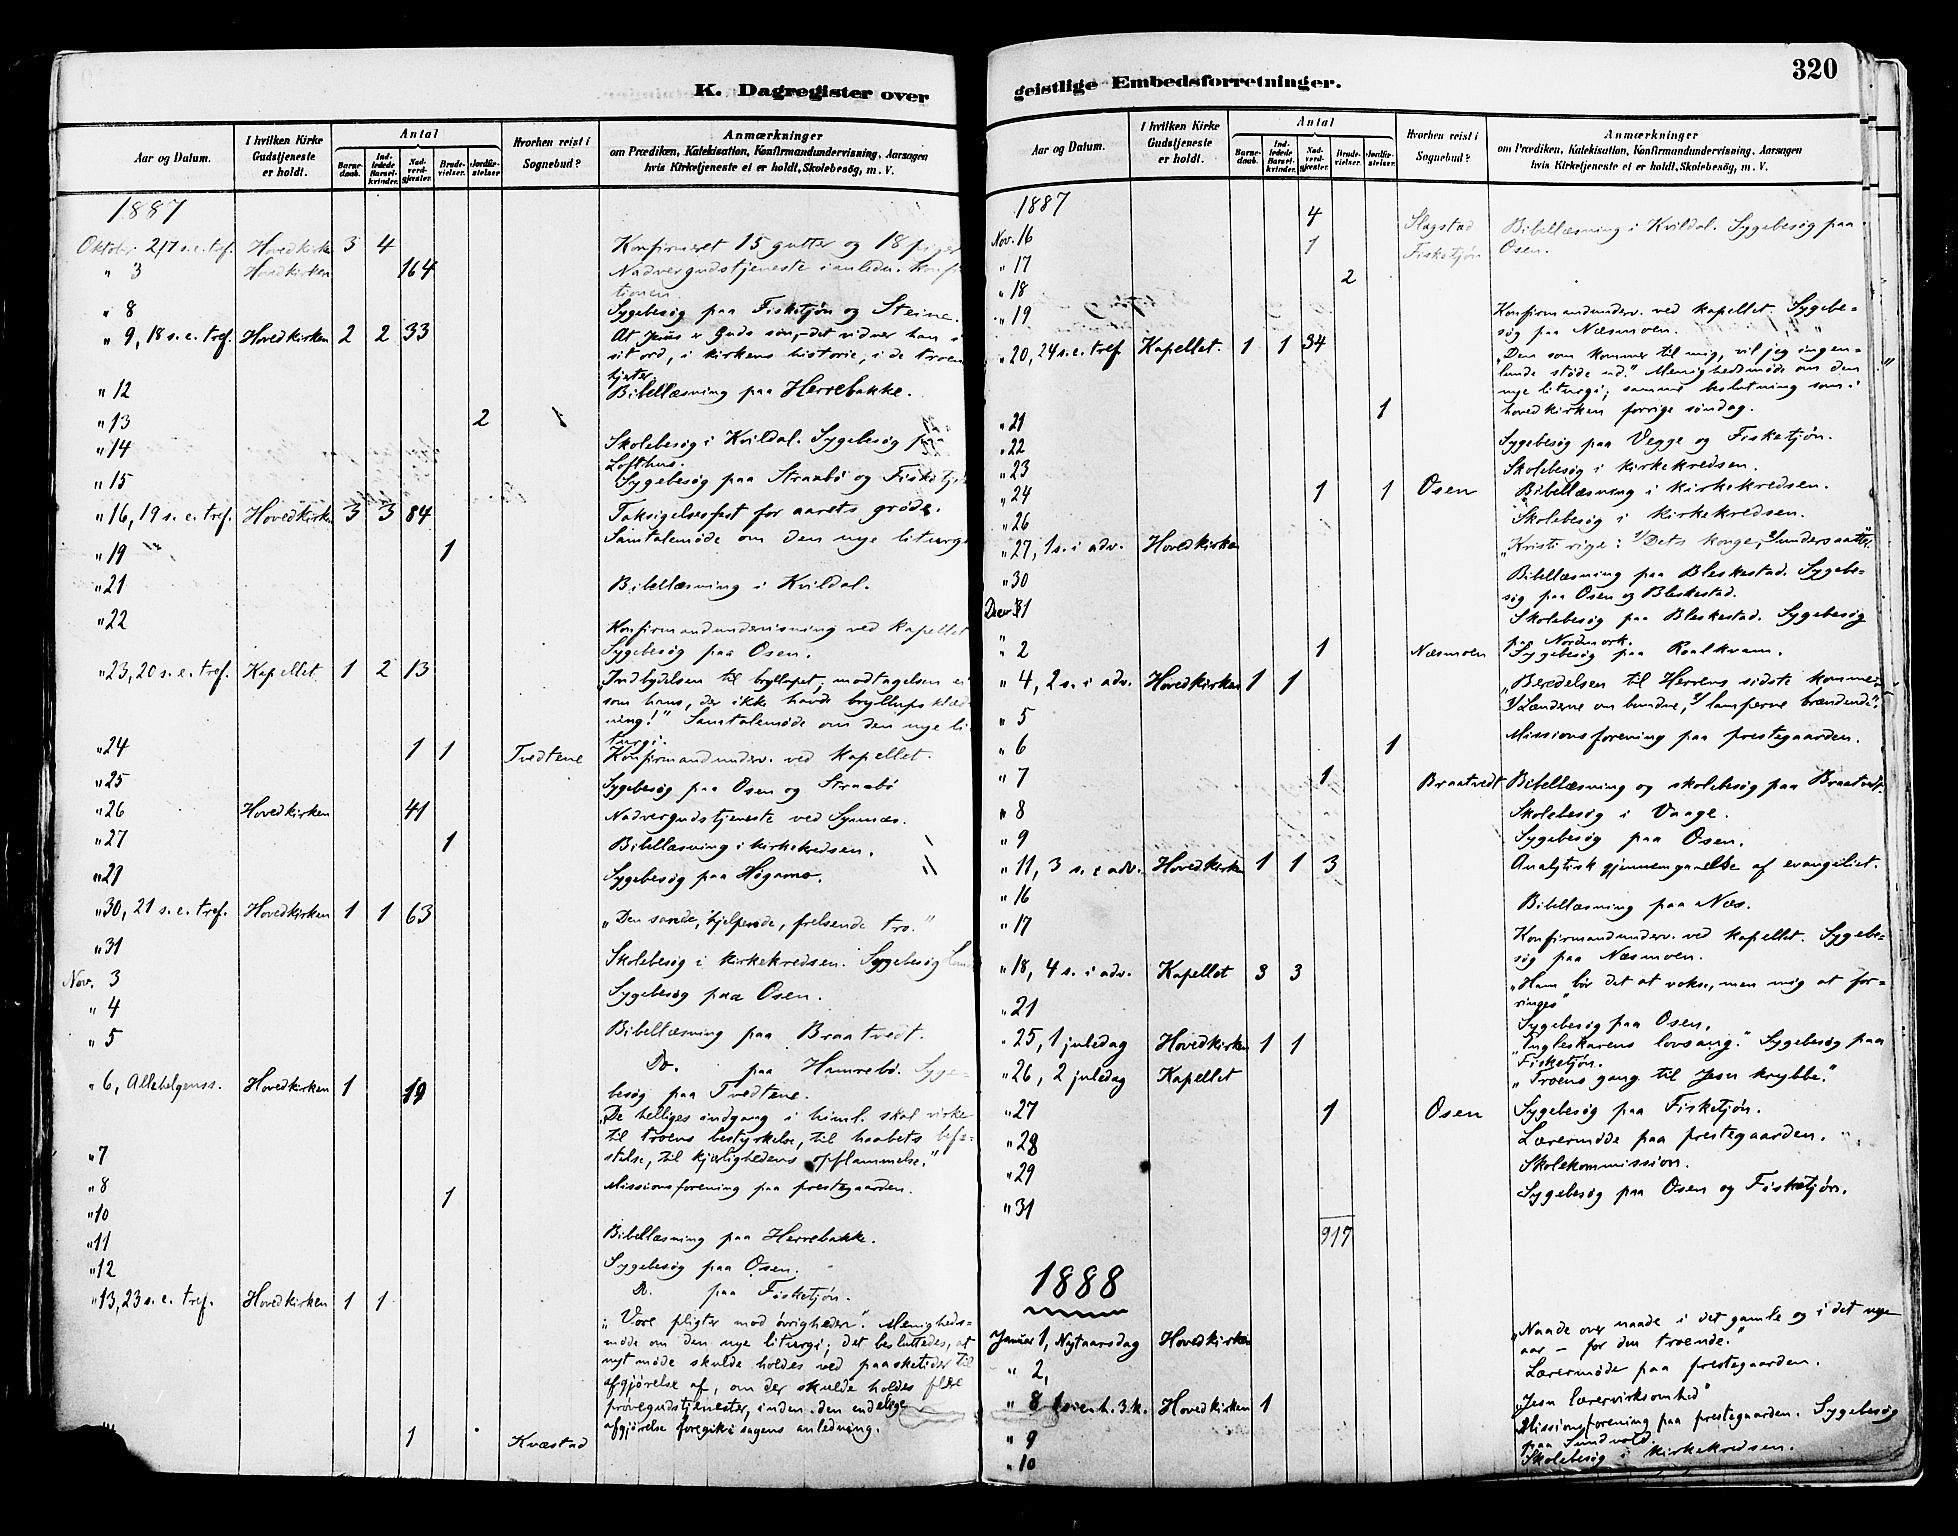 320
K. Dagregister over
geistlige Embedsforretninger.
Aar og Datum.
I hvilken Kirke Gudstjeneste er holdt.
Antal
Barnedaab.
Indledede Barselkvinder.
Nadverdgjester.
Brudevielser.
Jordfæstelser
Hvorhen reist i Sognebud?
Anmærkninger
om Prædiken, Katekisation, Konfirmandundervisning, Aarsagen
hvis Kirketjeneste ei er holdt, Skolebesøg, m. V.
1887
Oktober 2, 17 s. e. tref. Hovedkirken 3 4 Konfirmeret 15 gutter og 18 piger
" 3 Hovedkirken 164 Nadvergudstjeneste i anledn. konfir
tionen.
" 8 Sygebesøg paa Fisketjøn og Steine.
" 9, 18 s. e. tref. Hovedkirken 2 2 33 At Jesus er Guds søn, det vidner han i
sit ord, i kirkens historie, i de troen
hjerter.
" 12 Bibellæsning paa Herrebakke.
" 13 2 1
" 14 Skolebesøg i Kvildal. Sygebesøg paa
Lofthus.
" 15 Sygebesøg paa Straabø og Fisketjøn
" 16, 19 s. e. tref. Hovedkirken 3 3 84 Taksigelsesfest for aarets grøde.
Samtalemøde om den nye liturgi
" 19 1
" 21 Bibellæsning i Kvildal.
" 22 Konfirmandundervisning ved kapellet
Sygebesøg paa Osen.
" 23, 20 s. e. tref. Kapellet 1 2 13 "Indbydelsen til bryllupet; modtagelsen
som hans, der ikke havde bryllupsklæd
ning!" Samtalemøde om den nye li
turgi.
" 24 1 1 Tvedtene Konfirmandunderv. ved kapellet.
" 25 Sygebesøg paa Osen og Straabø
" 26 Hovedkirken 41 Nadvergudstjeneste ved Synnæs.
" 27 1 Bibellæsning i kirkekredsen.
" 29 Sygebesøg paa Høgamo.
" 30, 21 s. e. tref. Hovedkirken 1 1 63 "Den sande, hjelpende, frelsende tro."
" 31 Skolebesøg i kirkekredsen. Sygebesøg
Nov. 3 Sygebesøg paa Osen.
" 4 Bibellæsning paa Braatvedt.
" 5 Do. paa Hamrebø. Syge-
besøg paa Tvedtene.
" 6, Allehelgenss. Hovedkirken 1 19 "De helliges indgang i himl. skal virke
til troens bestyrkelse, til haabets befæ-
stelse, til kjærlighedens opflammelse."
" 7 Missionsforening paa prestegaarden.
" 8 1
" 10 Bibellæsning paa Herrebakke.
" 11 Sygebesøg paa Osen.
" 12 Do. paa Fisketjøn.
" 13, 23 s. e. tref. Hovedkirken 1 1 "Vore pligter mod øvrigheden". Menigheds-
møde om den nye liturgi; det besluttedes, at
nyt møde skulde holdes ved paasketider til
afgjørelse af, om der skulde holdes flere
prøvegudstjenester, inden den endelige
afgjørelse foregik i sagens anledning.
1 Kvæstad
Aar og Datum.
I hvilken Kirke Gudstjeneste er holdt.
Antal
Barnedaab.
Indledede Barselkvinder.
Nadverdgjester.
Brudevielser.
Jordfæstelser
Hvorhen reist i Sognebud?
Anmærkninger
om Prædiken, Katekisation, Konfirmandundervisning, Aarsagen
hvis Kirketjeneste ei er holdt, Skolebesøg, m. V.
1887
4 Slagstad Bibellæsning i Kvildal. Sygebesøg paa
Nov. 16 1 Fisketjøn Osen.
" 17 2
" 18
" 19 Konfirmandunderv. ved kapellet. Sygebe-
søg paa Næsmoen.
" 20, 24 s. e. tref Kapellet. 1 1 34 "Den som kommer til mig, vil jeg ingen-
lunde støde ud." Menighedsmøde om den
nye liturgi; samme beslutning som i
hovedkirken forrige søndag.
" 21 1
" 22 Sygebesøg paa Vegge og Fisketjøn.
" 23 Skolebesøg i kirkekredsen.
" 24 1 1 Osen Bibellæsning i kirkekredsen.
" 26 Skolebesøg i kirkekredsen.
" 27, 1 s. i adv. Hovedkirken "Kristi rige: 1/ Dets konge, 2/ undersaatter"
" 30 Bibellæsning paa Bleskestad. Sygebe-
søg paa Osen og Bleskestad.
Decr. 1 Skolebesøg paa Bleskestad. Sygebesøg
paa Nordmork.
" 2 1 Næsmoen Sygebesøg paa Roalkvam.
" 4, 2 s. i adv. Hovedkirken 1 1 "Beredelsen til Herrens sidste komme
1/ Lænderne om bundne, 2/ lamperne brændende".
" 5 Missionsforening paa prestegaarden.
" 6 1
" 7 1 Braatvedt Bibellæsning og skolebesøg paa Braatvedt.
" 8 Skolebesøg i Vaage.
" 9 Sygebesøg paa Osen.
" 11, 3 s. i adv. Hovedkirken 1 1 3 Analytisk gjennemgaaelse af evangeliet.
" 16 Bibellæsning paa Næs.
" 17 Konfirmandunderv. ved kapellet. Sygebe-
søg paa Næsmoen.
" 18, 4 s. i adv. Kapellet 3 3 "Ham bør det at vokse, men mig at for-
ringes"
" 21 Sygebesøg paa Osen.
" 25, 1 juledag Hovedkirken 1 1 "Engleskarens lovsang." Sygebesøg paa
Fisketjøn.
" 26, 2 juledag Kapellet "Troens gang til Jesu krybbe."
" 27 1 Osen Sygebesøg paa Fisketjøn.
" 28 Lærermøde paa prestegaarden.
" 29 Skolekommission.
" 31 Sygebesøg paa Osen og Fisketjøn.
917
1888
Januar 1, Nytaarsdag Hovedkirken "Naade over naade i det gamle og i det nye
aar – for den troende."
" 2, Lærermøde paa prestegaarden.
" 8 1 s. e. h. 3. k. Hovedkirken 1 "Jesu lærervirksomhed"
" 9 Missionsforening paa prestegaarden. Sygebesøg
paa Sundvold.
" 10 Skolebesøg i kirkekredsen.